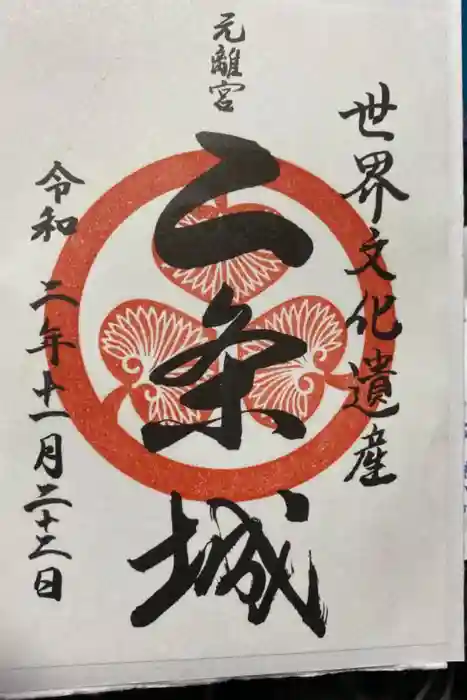 世界文化遺産
元離宮
二条城
令和二年十一月二十二日